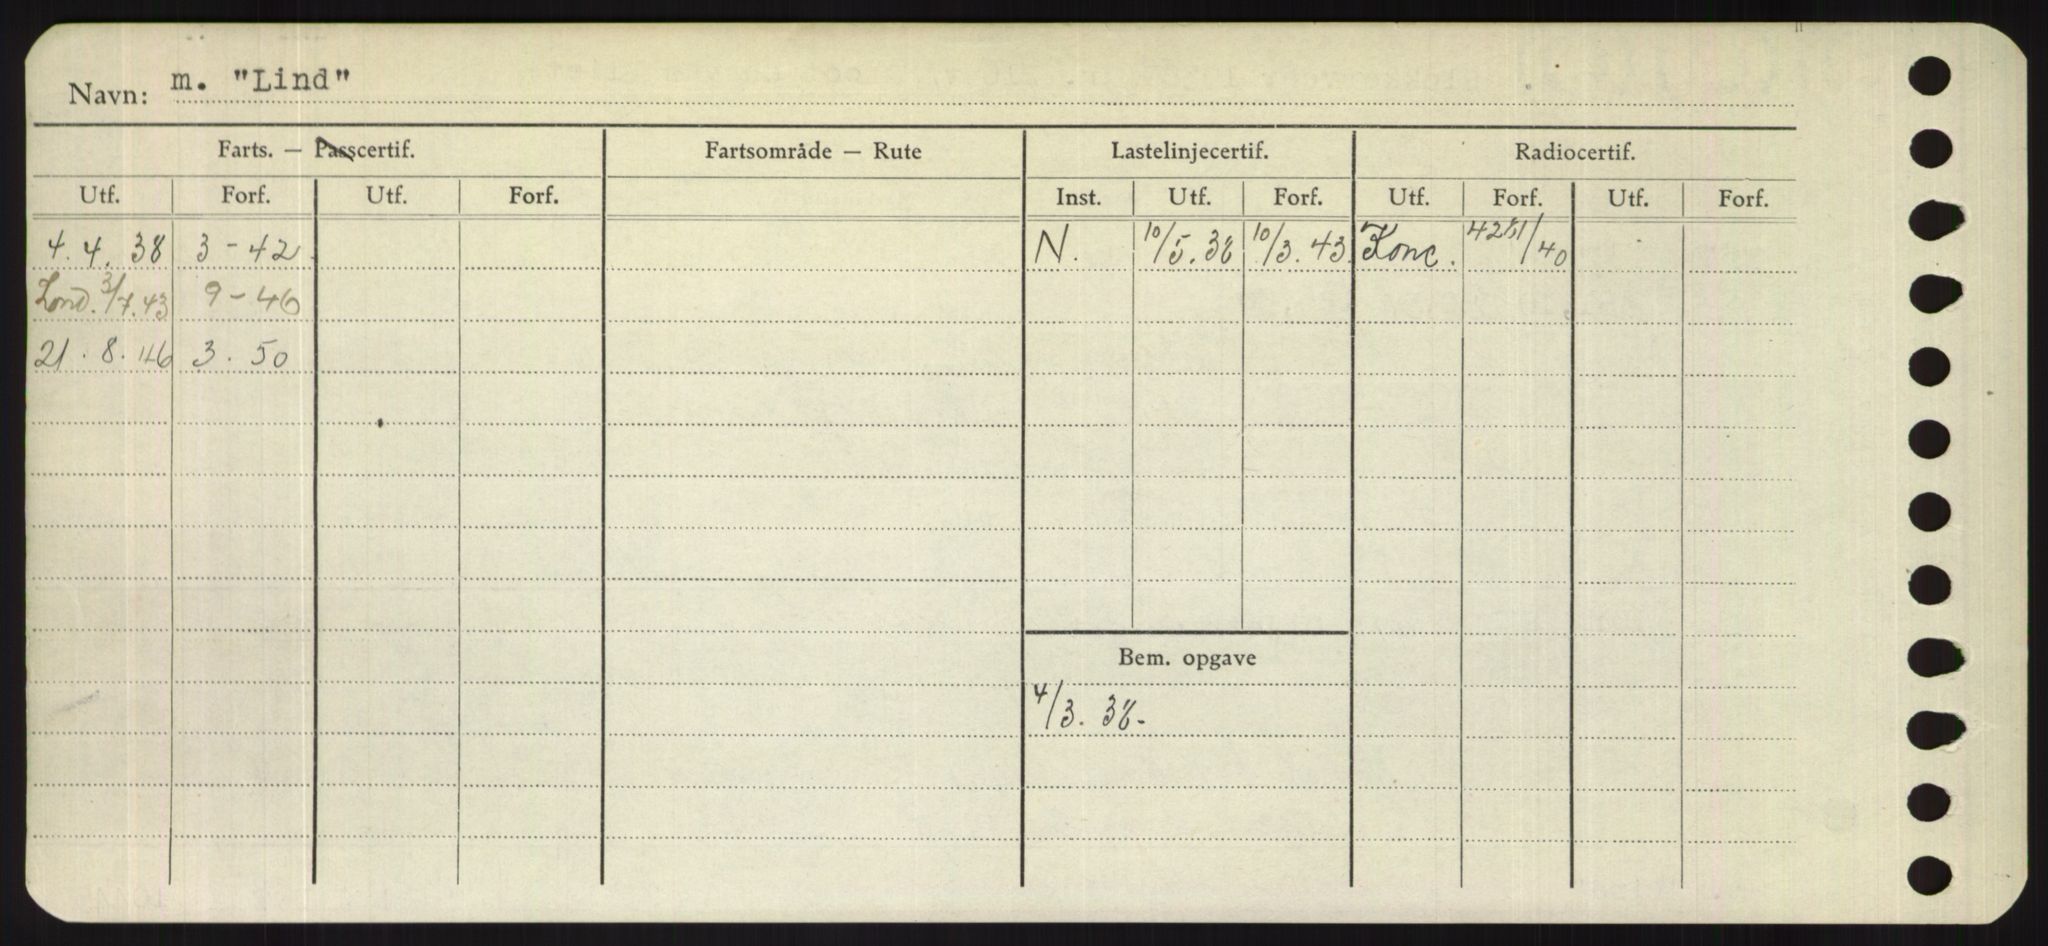 Navn: m. "Lind"
Farts. — Passcertif. Fartsområde — Rute Lastelinjecertif. Radiocertif.
Utf. Forf. Utf. Forf. Inst. Utf. Forf. Utf. Forf. Utf. Forf.
4. 4. 38 3 - 42 N. 10/5. 38 10/3. 43 Konc. /40
Lond. 3/7. 43 9 - 46
21. 8. 46 3. 50
Bem. opgave
4/3. 38.